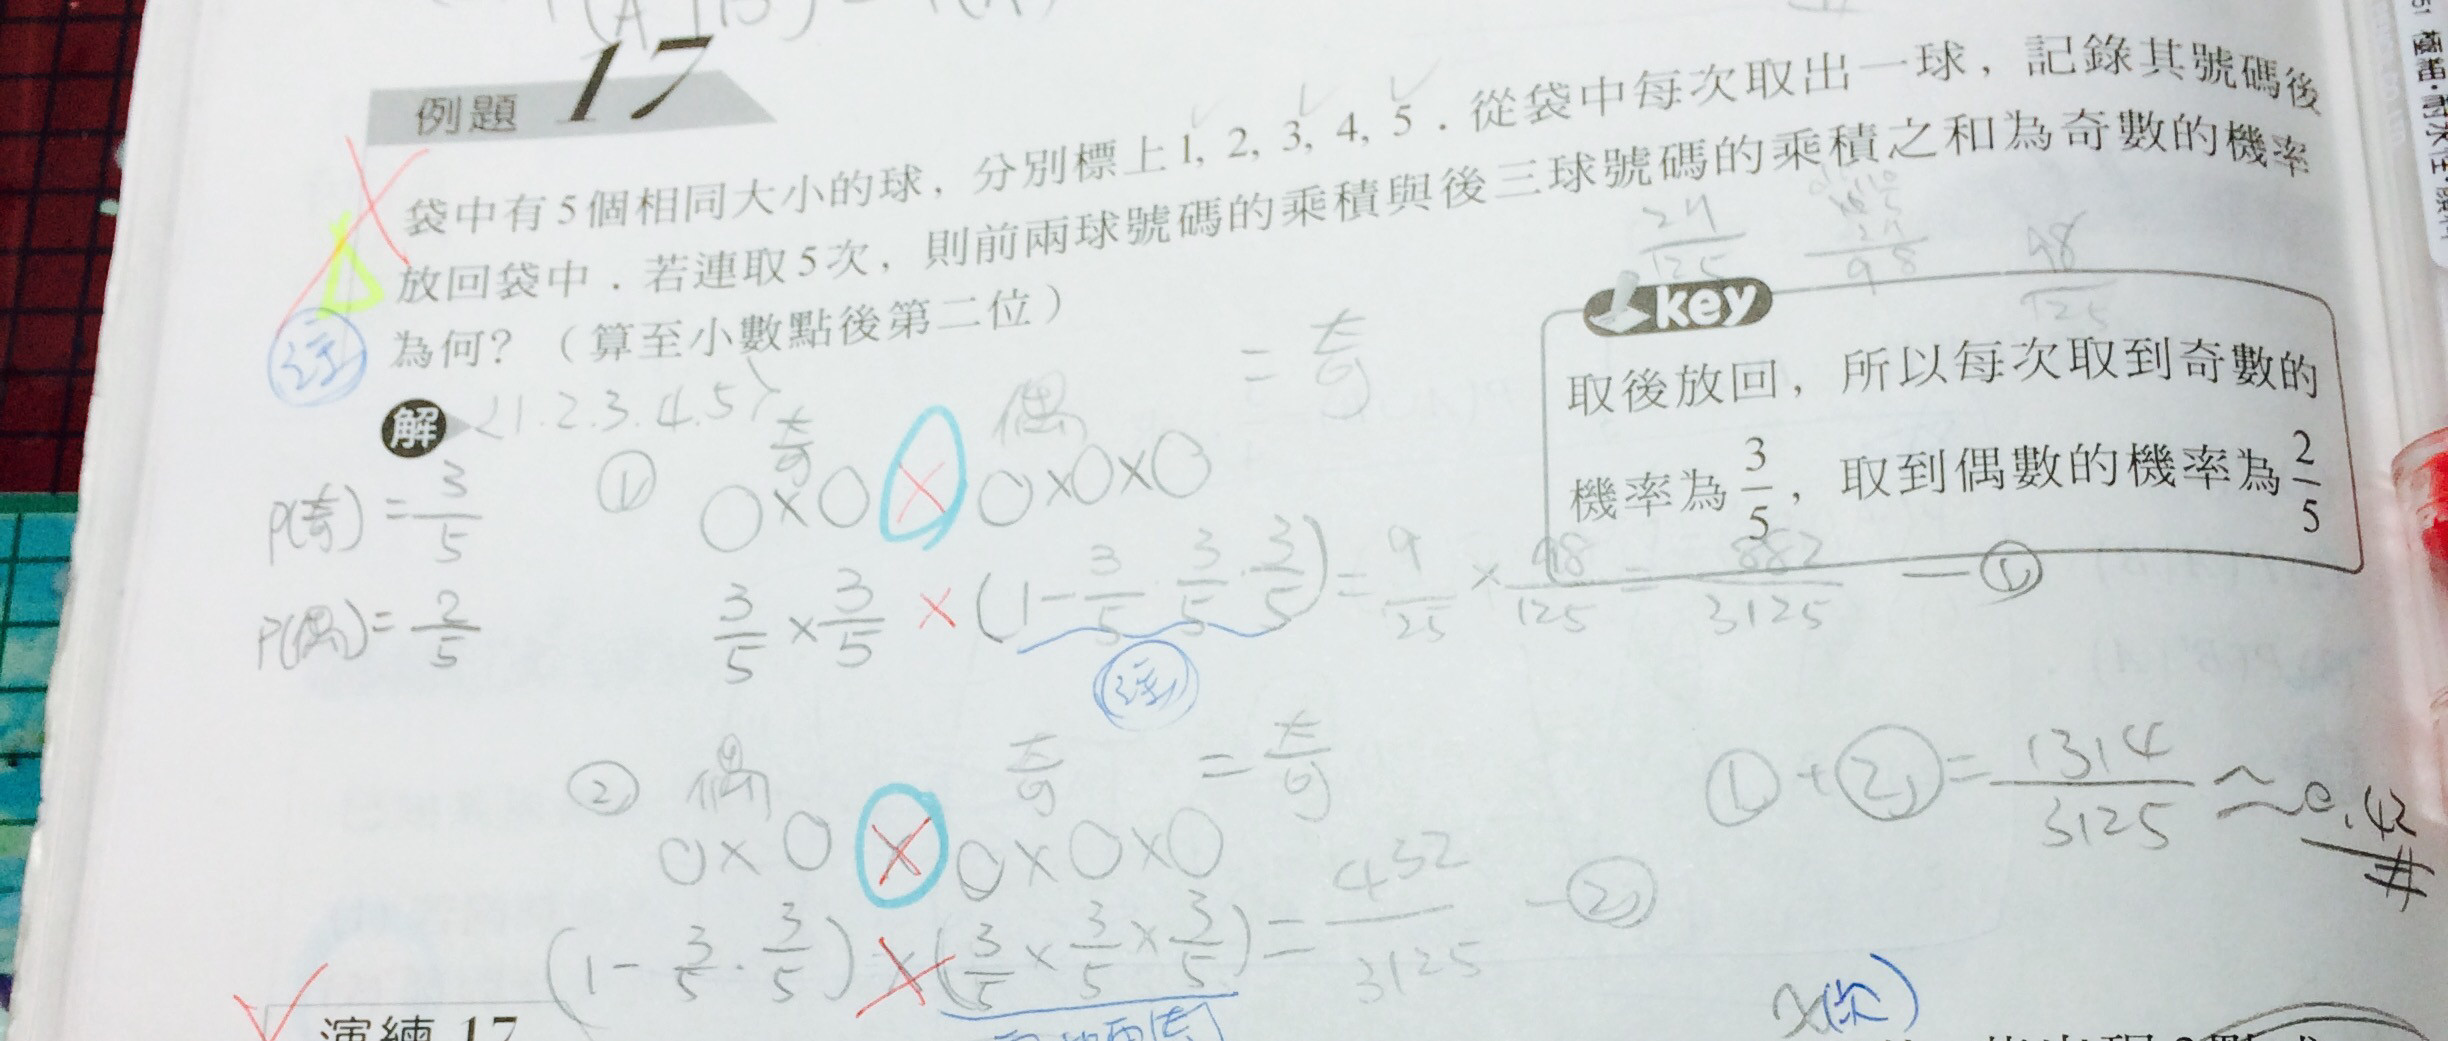 例題 17
袋中有5個相同大小的球，分別標上1, 2, 3, 4, 5．從袋中每次取出一球，記錄其號碼後
放回袋中．若連取5次，則前兩球號碼的乘積與後三球號碼的乘積之和為奇數的機率
為何？（算至小數點後第二位）
注
24/125
98
98/125
key
取後放回，所以每次取到奇數的
機率為3/5，取到偶數的機率為2/5
解 {1.2.3.4.5}
P(奇)=3/5
P(偶)=2/5
① 奇 偶 =奇
○×○×○×○×○
3/5×3/5×(1-3/5·3/5·3/5)=9/25×98/125=882/3125 —①
注
② 偶 奇 =奇
○×○×○×○×○
(1-3/5·3/5)×(3/5×3/5×3/5)=432/3125 -②
①+②=1314/3125≈0.42#
x(次)
演練 17